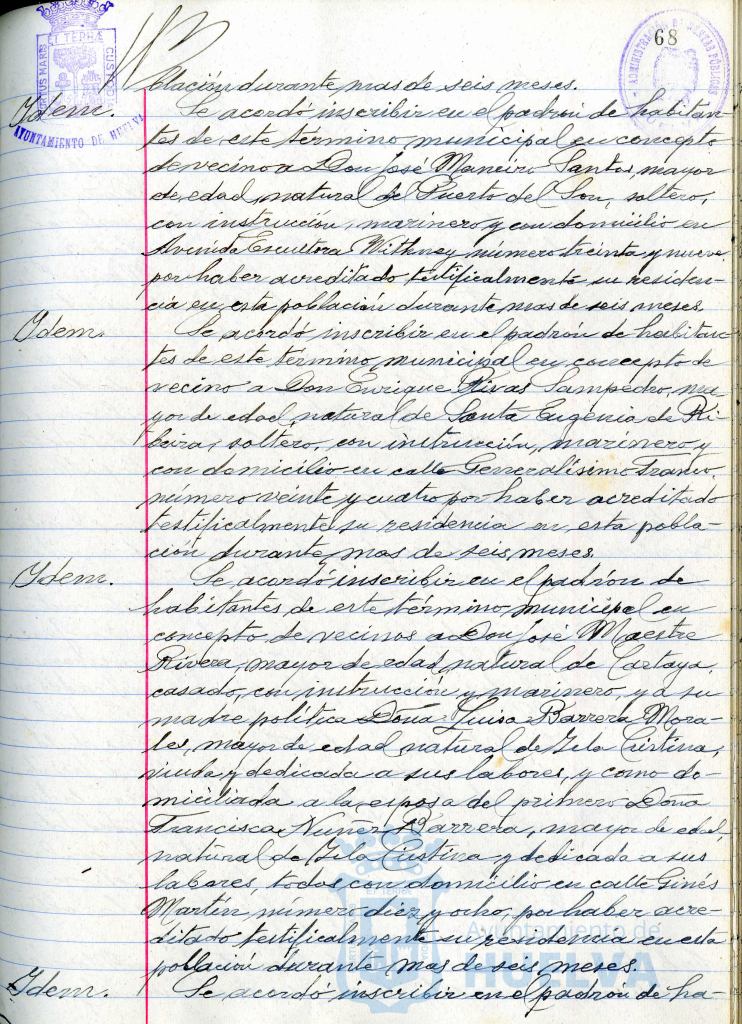 68
blación durante mas de seis meses.
Idem. Se acordó inscribir en el padrón de habitan-
tes de este término municipal en concepto
de vecino a Don José Maneiro Santos, mayor
de edad, natural de Puerto del Son, soltero,
con instrucción, marinero y con domicilio en
Avenida Escultora Withney número treinta y nueve
por haber acreditado testificalmente su residen-
cia en esta población durante mas de seis meses.
Idem. Se acordó inscribir en el padrón de habitan-
tes de este término municipal en concepto de
vecino a Don Enrique Rivas Sampedro, ma
yor de edad, natural de Santa Eugenia de Ri-
beira, soltero, con instrucción, marinero y
con domicilio en calle Generalísimo Franco,
número veinte y cuatro por haber acreditado
testificalmente su residencia en esta pobla-
ción durante mas de seis meses.
Idem. Se acordó inscribir en el padrón de
habitantes de este término municipal en
concepto de vecinos a Don José Maestre
Rivera, mayor de edad, natural de Cartaya,
casado, con instrucción y marinero, y a su
madre política Doña Luisa Barrera Mora-
les, mayor de edad natural de Isla Cristina,
viuda y dedicada a sus labores, y como do-
miciliada a la esposa del primero Doña
Francisca Nuñez Barrera, mayor de edad,
natural de Isla Cristina y dedicada a sus
labores, todos con domicilio en calle Ginés
Martín, número diez y ocho, por haber acre-
ditado testificalmente su residencia en esta
población durante mas de seis meses.
Idem. Se acordó inscribir en el padrón de ha-
AYUNTAMIENTO DE HUELVA
Ayuntamiento de
HUELVA